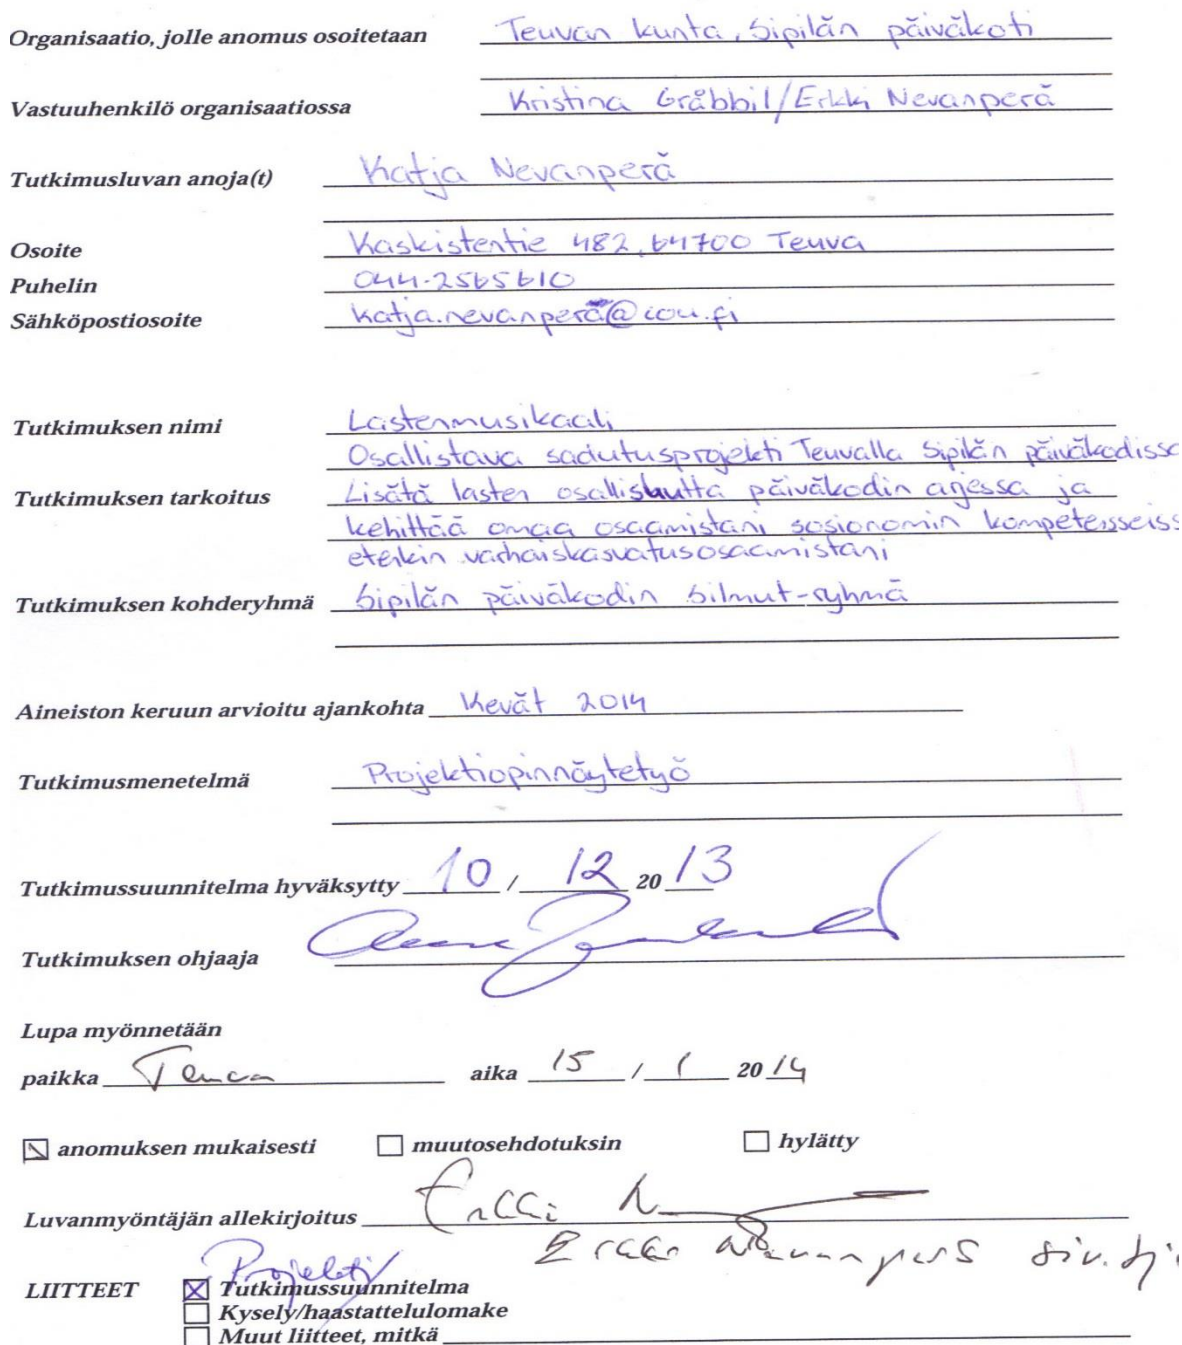 Organisaatio, jolle anomus osoitetaan Teuvan kunta, Sipilän päiväkoti
Vastuuhenkilö organisaatiossa Kristina Gräbbil/Erkki Nevanperä
Tutkimusluvan anoja(t) Katja Nevanperä
Osoite Kaskistentie 482, 64700 Teuva
Puhelin 044-2565610
Sähköpostiosoite katja.nevanperä@cou.fi
Tutkimuksen nimi Lastenmusikaali
Osallistava sadutusprojekti Teuvalla Sipilän päiväkodissa
Tutkimuksen tarkoitus Lisätä lasten osallisuutta päiväkodin arjessa ja
kehittää omaa osaamistani sosionomin kompetensseiss
etenkin varhaiskasvatusosaamistani
Tutkimuksen kohderyhmä Sipilän päiväkodin Silmut-ryhmä
Aineiston keruun arvioitu ajankohta Kevät 2014
Tutkimusmenetelmä Projektiopinnäytetyö
Tutkimussuunnitelma hyväksytty 10 / 12 20 13
Tutkimuksen ohjaaja
Lupa myönnetään
paikka Teuva aika 15 / 1 20 14
anomuksen mukaisesti muutosehdotuksin hylätty
Luvanmyöntäjän allekirjoitus Erkki N
Erkki Nevanperä siv.tj
Projekti
LIITTEET Tutkimussuunnitelma
Kysely/haastattelulomake
Muut liitteet, mitkä